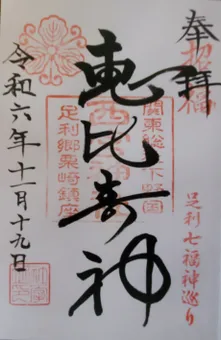 奉拝
招福
足利七福神巡り
下野国
恵比寿神
足利郷栗崎鎮座
令和六年十一月十九日